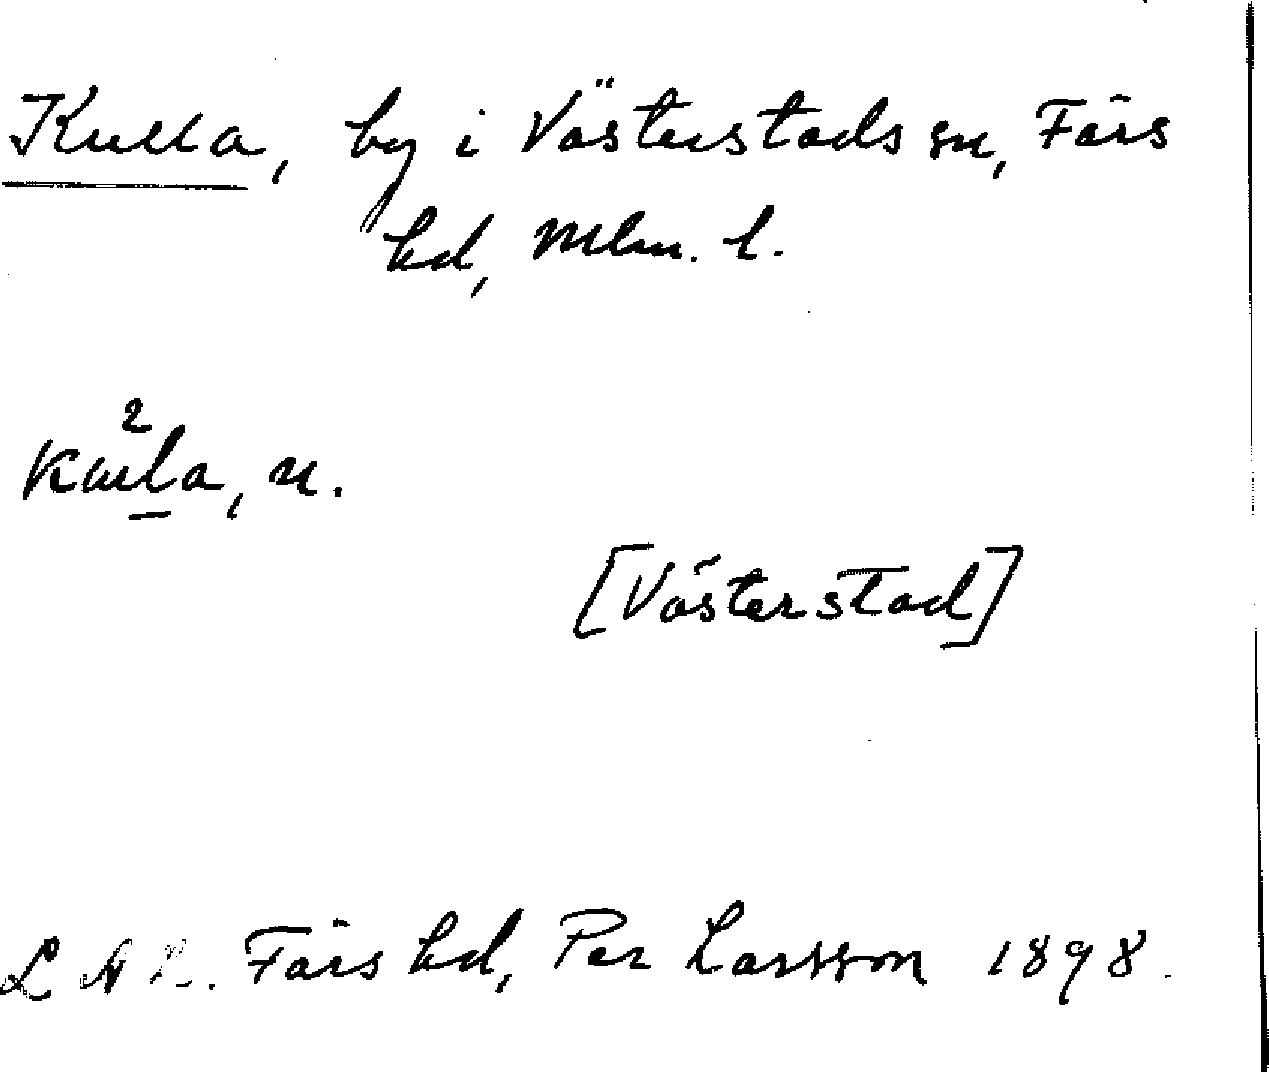 Kulla, by i Västerstads sn, Färs
hd, Mlm. l.
2
Kaula, n.
[Västerstad]
L A U. Färs hd, Per Larsson 1898.